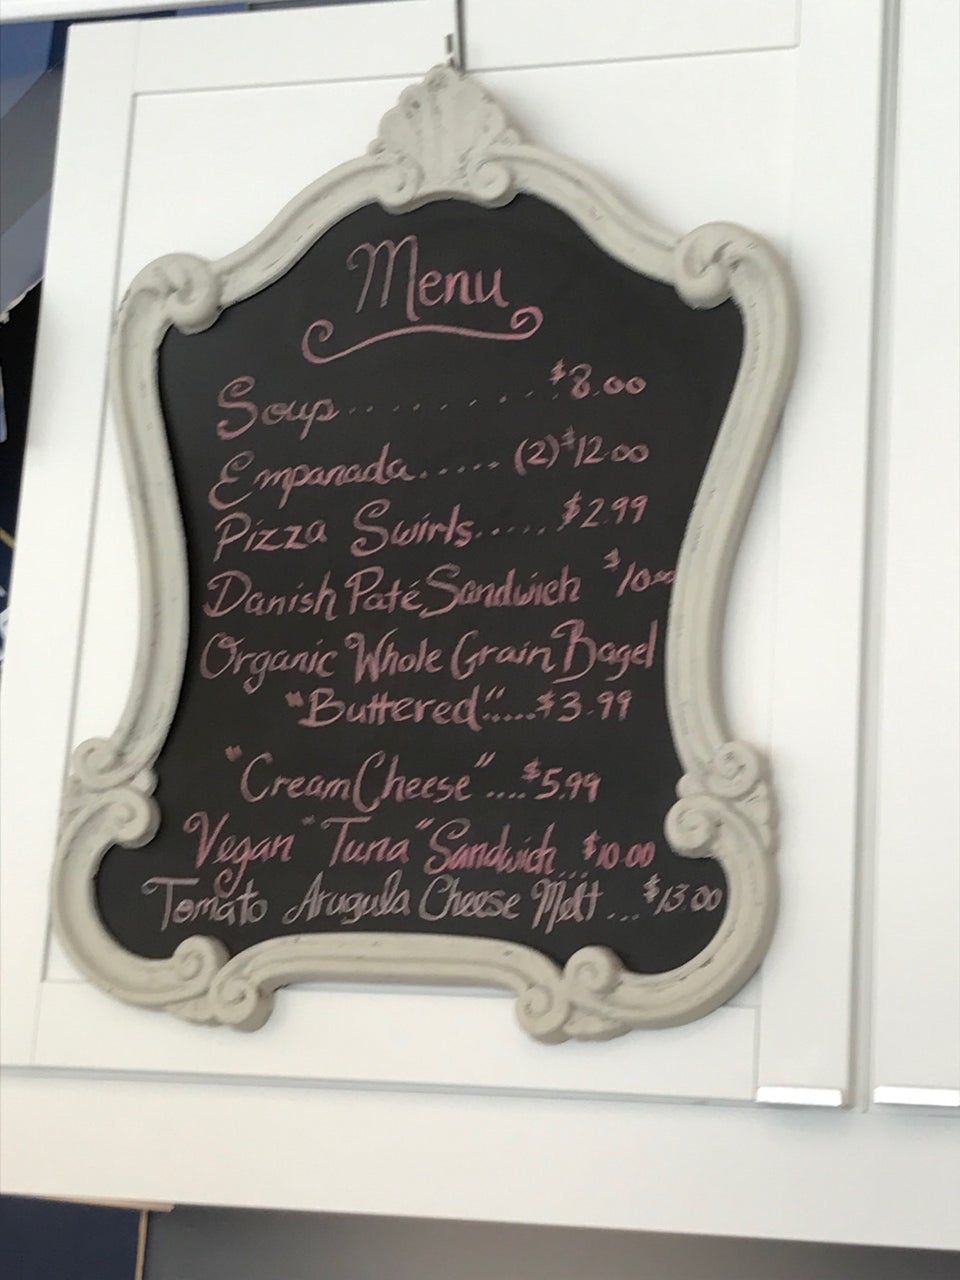 Menu
Soup.......... $8.00
Empanada..... (2) $12.00
Pizza Swirls..... $2.99
Danish Paté Sandwich $10.00
Organic Whole Grain Bagel
"Buttered"..... $3.99
"Cream Cheese".... $5.99
Vegan "Tuna" Sandwich... $10.00
Tomato Arugula Cheese Melt... $13.00